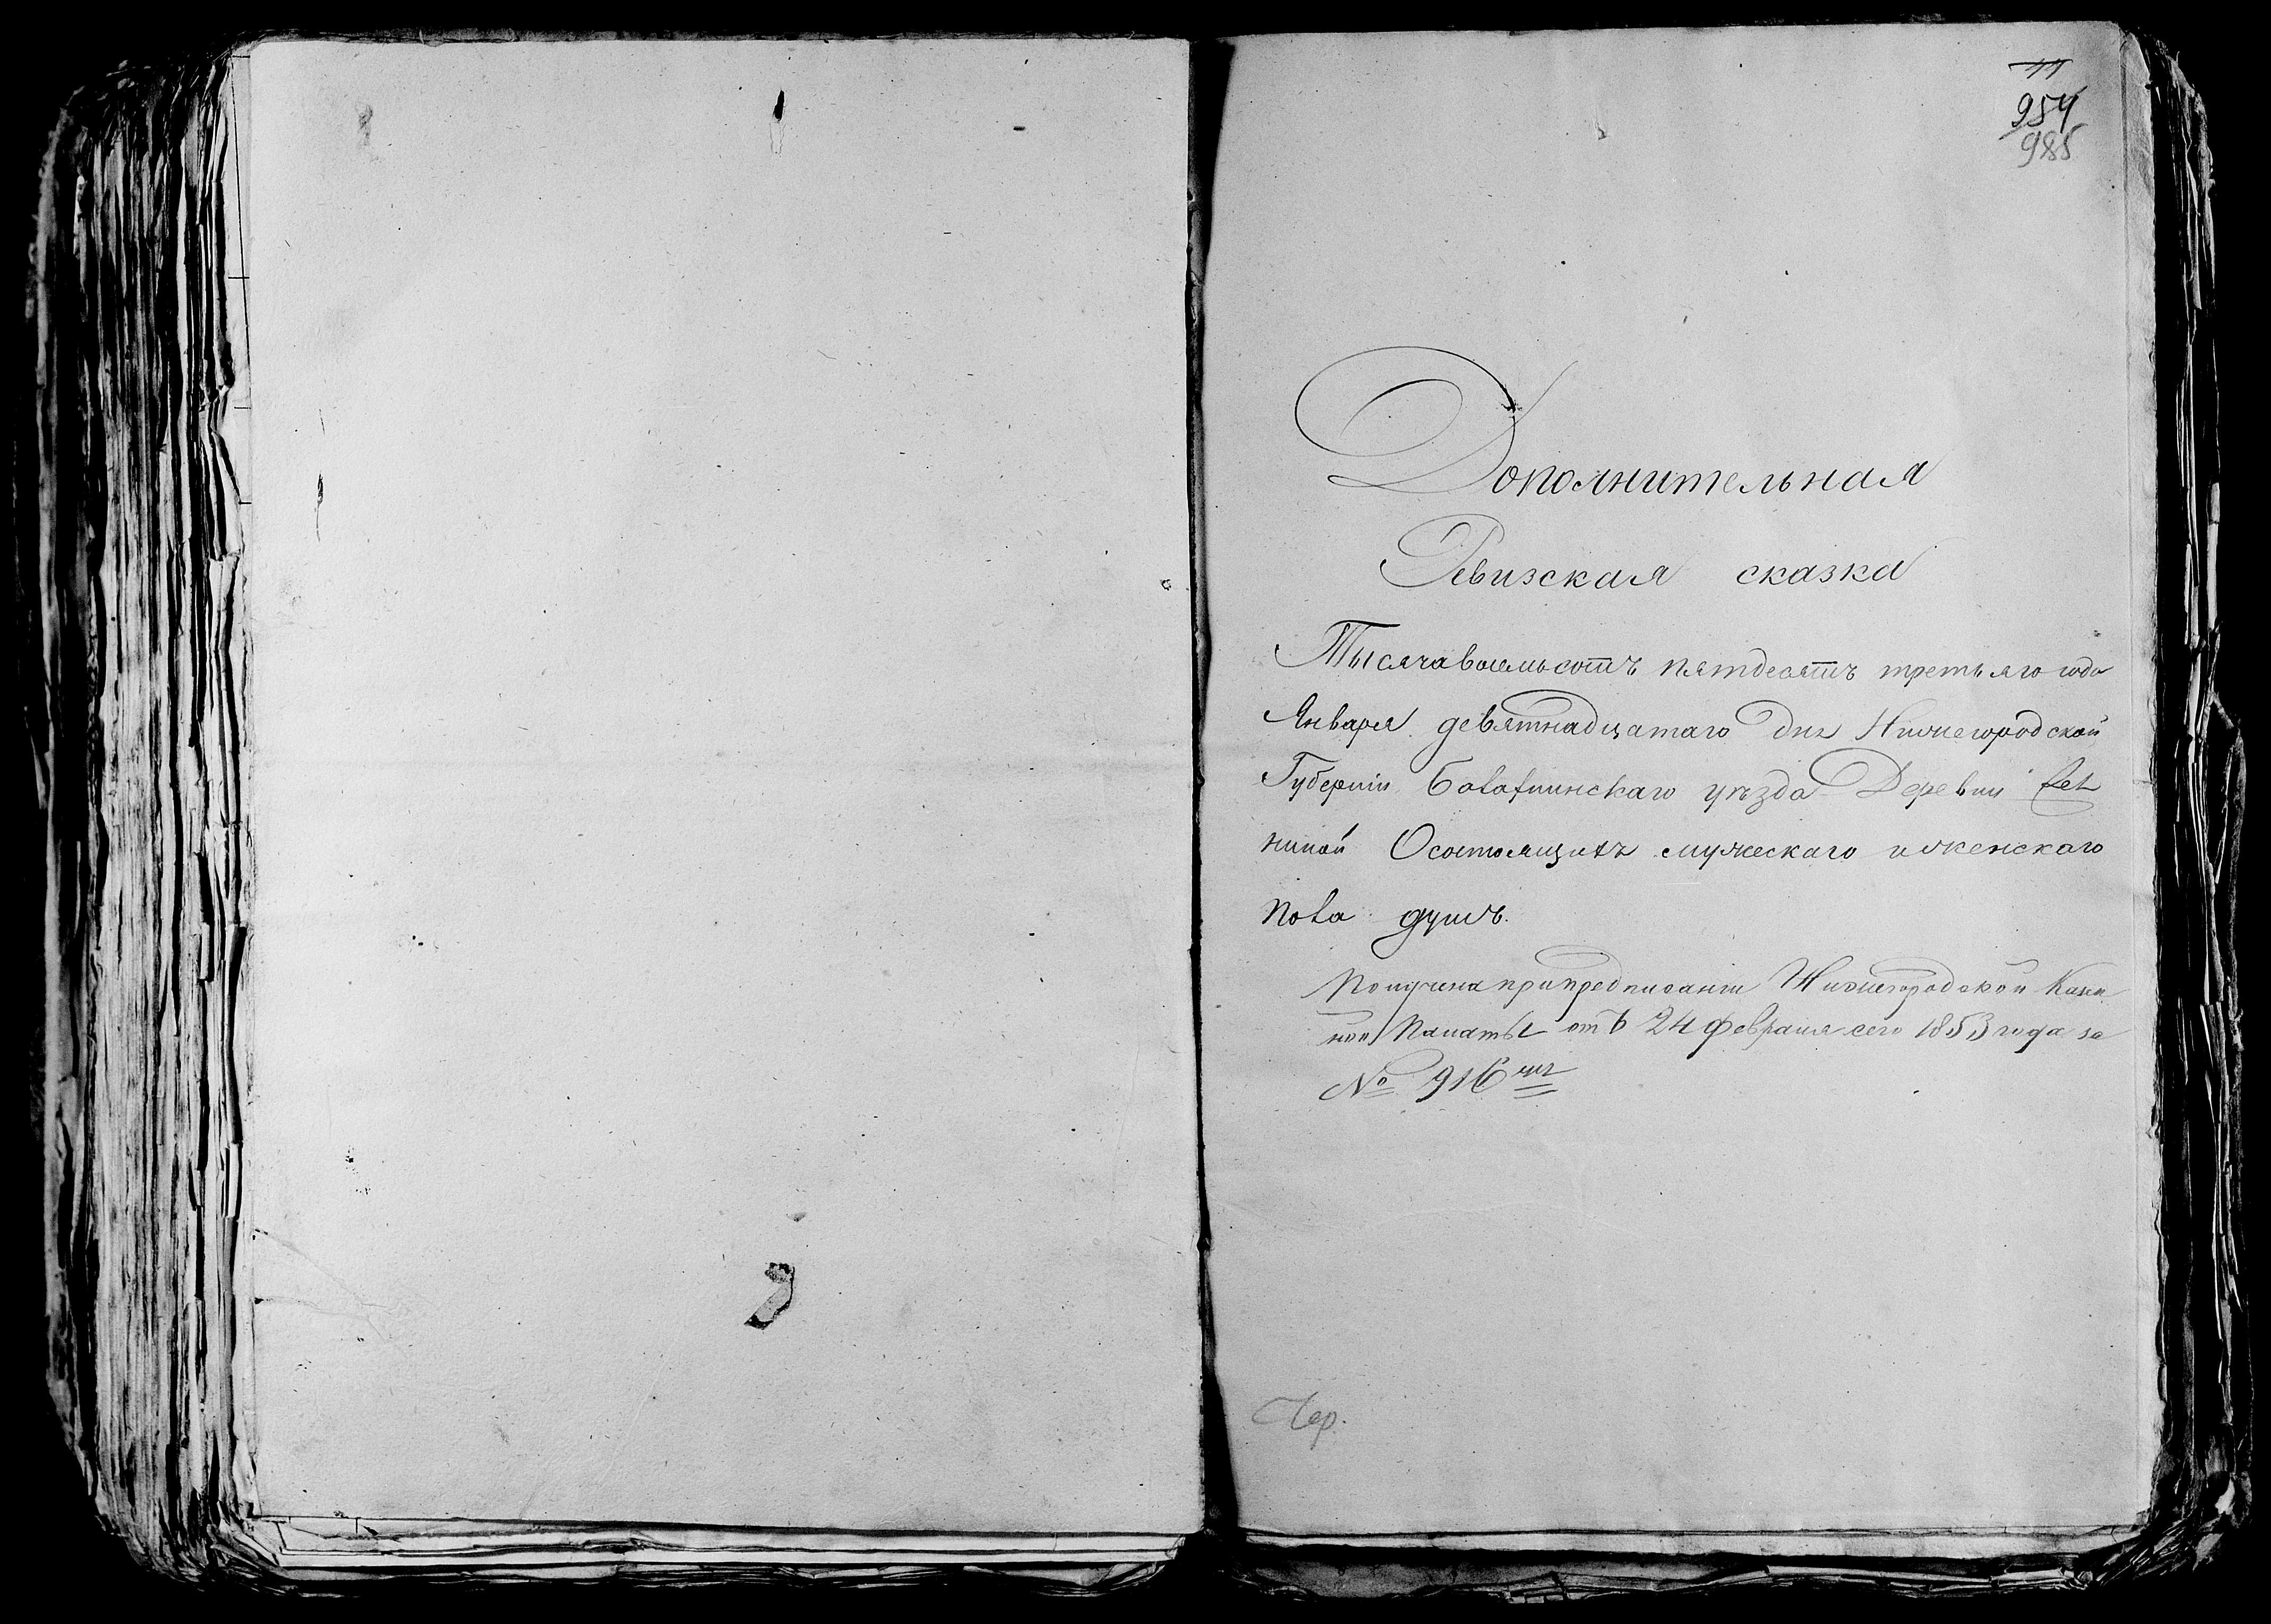 11
954
985
Дополнительная
Ревизская сказка
Тысяча восемьсотъ пятдесятъ третьяго года
Января девятнадцатаго дня Нижегородской
Губерніи Балахнинскаго уѣзда Деревни
О состоящихъ мужескаго и женскаго
пола душъ.
Получена при предписаніи Нижегородской Казен
ной Палаты отъ 24 февраля сего 1853 года за
№ 916